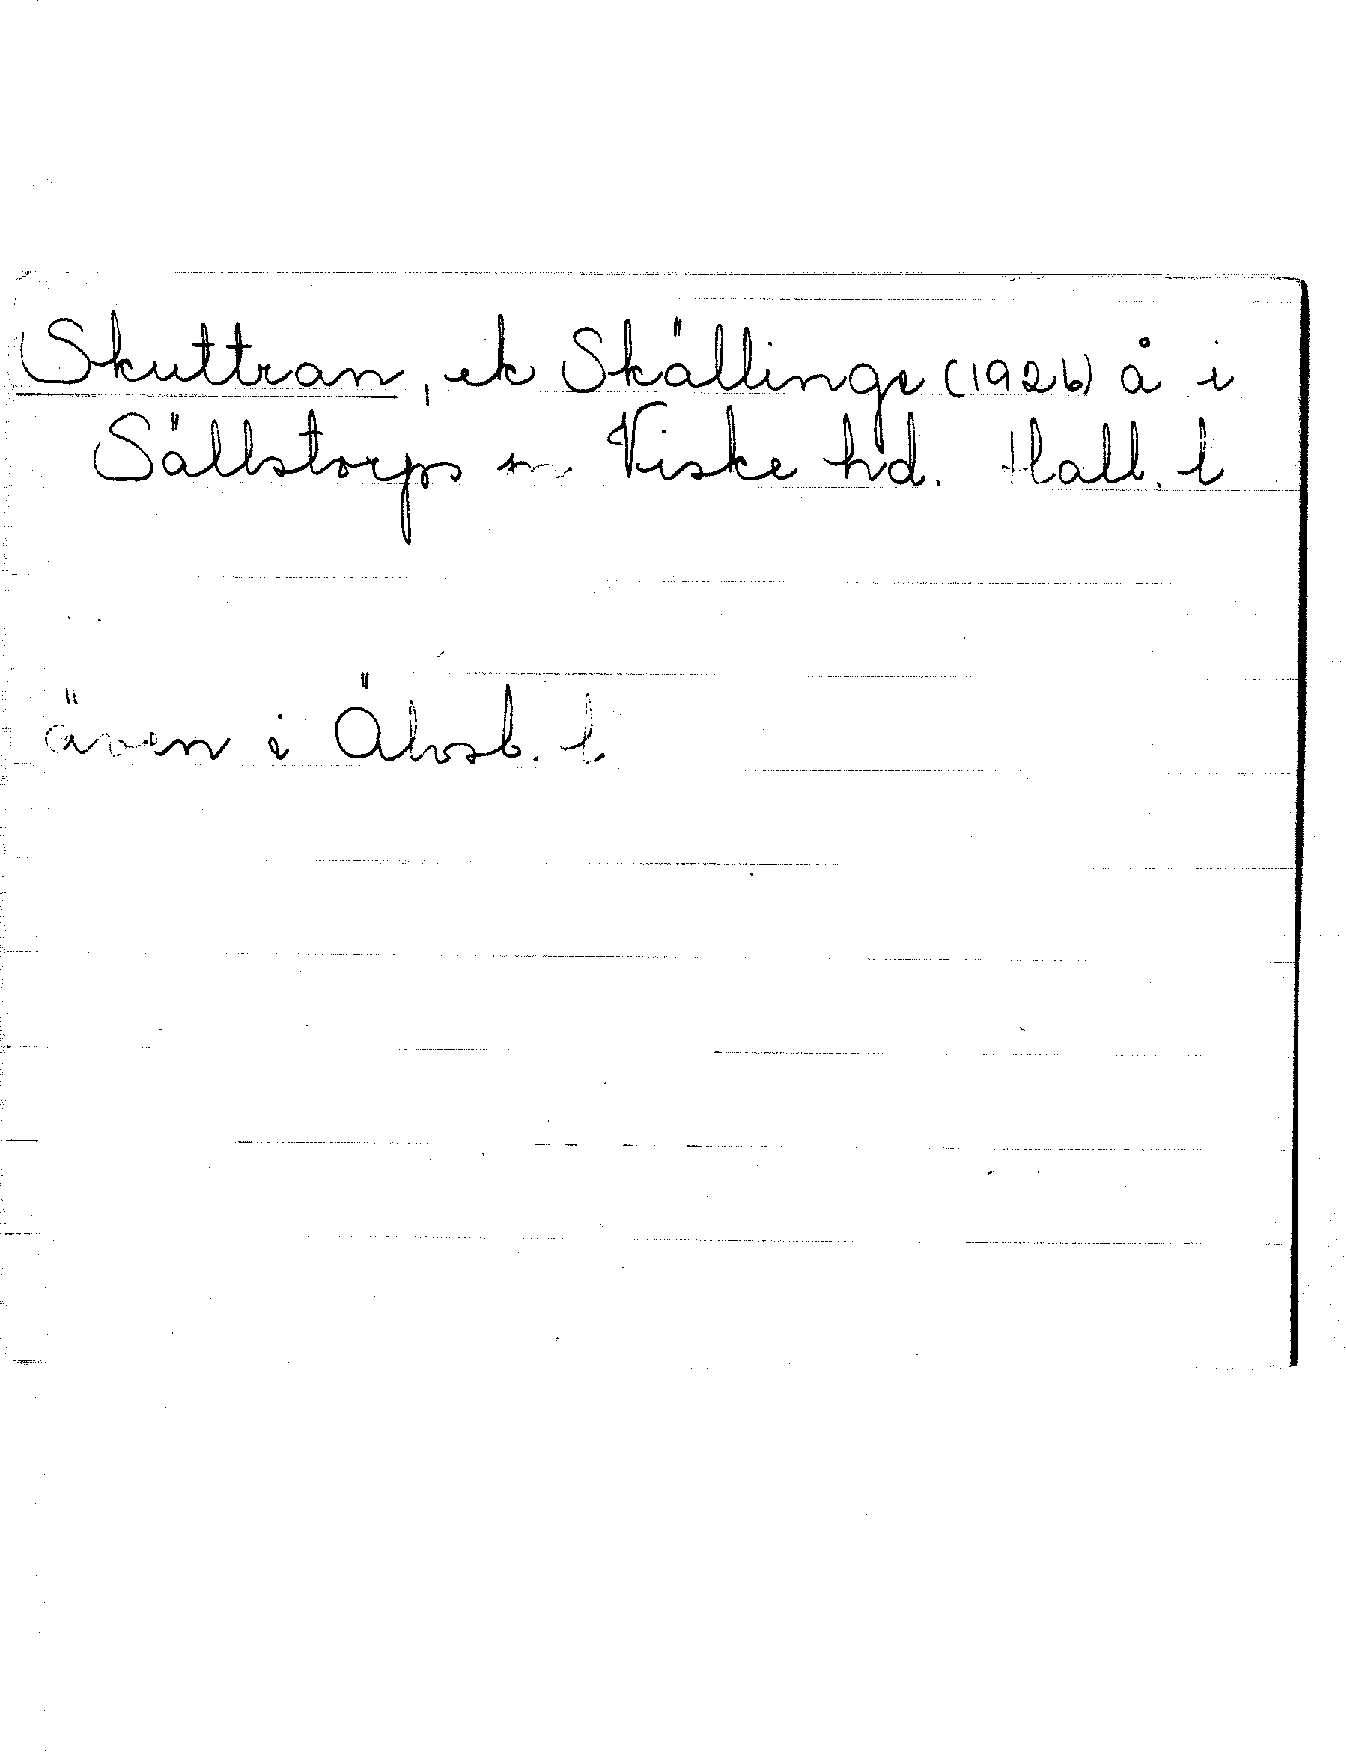 Skuttran, ek Skällinge (1926) å i
Sällstorps sn. Viske hd. Hall. l
även i Älvsb. l.